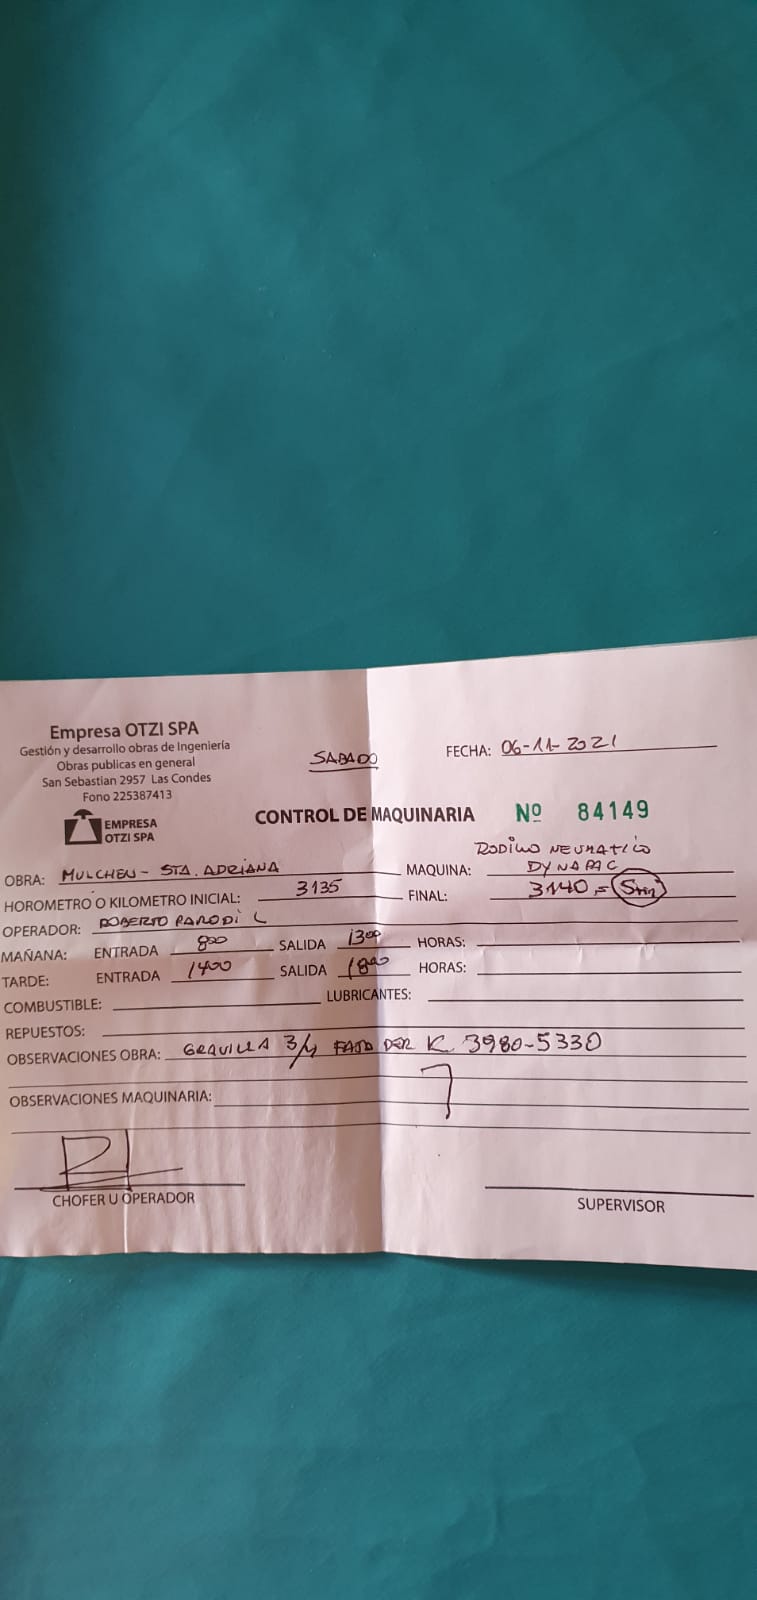 Empresa OTZI SPA
Gestión y desarrollo obras de Ingeniería
Obras publicas en general
San Sebastian 2957 Las Condes
Fono 225387413
EMPRESA
OTZI SPA
SABADO
FECHA: 06-11-2021
CONTROL DE MAQUINARIA Nº 84149
OBRA: MULCHEN - STA. ADRIANA
MAQUINA: RODILLO NEUMATICO
DYNAPAC
HOROMETRO O KILOMETRO INICIAL: 3135
FINAL: 3140 =
OPERADOR: ROBERTO PARODI L
MAÑANA: ENTRADA 800 SALIDA 1300 HORAS:
TARDE: ENTRADA 1400 SALIDA 1800 HORAS:
COMBUSTIBLE: LUBRICANTES:
REPUESTOS:
OBSERVACIONES OBRA: GRAVILLA 3/4 DER K 3980-5330
OBSERVACIONES MAQUINARIA:
CHOFER U OPERADOR
SUPERVISOR